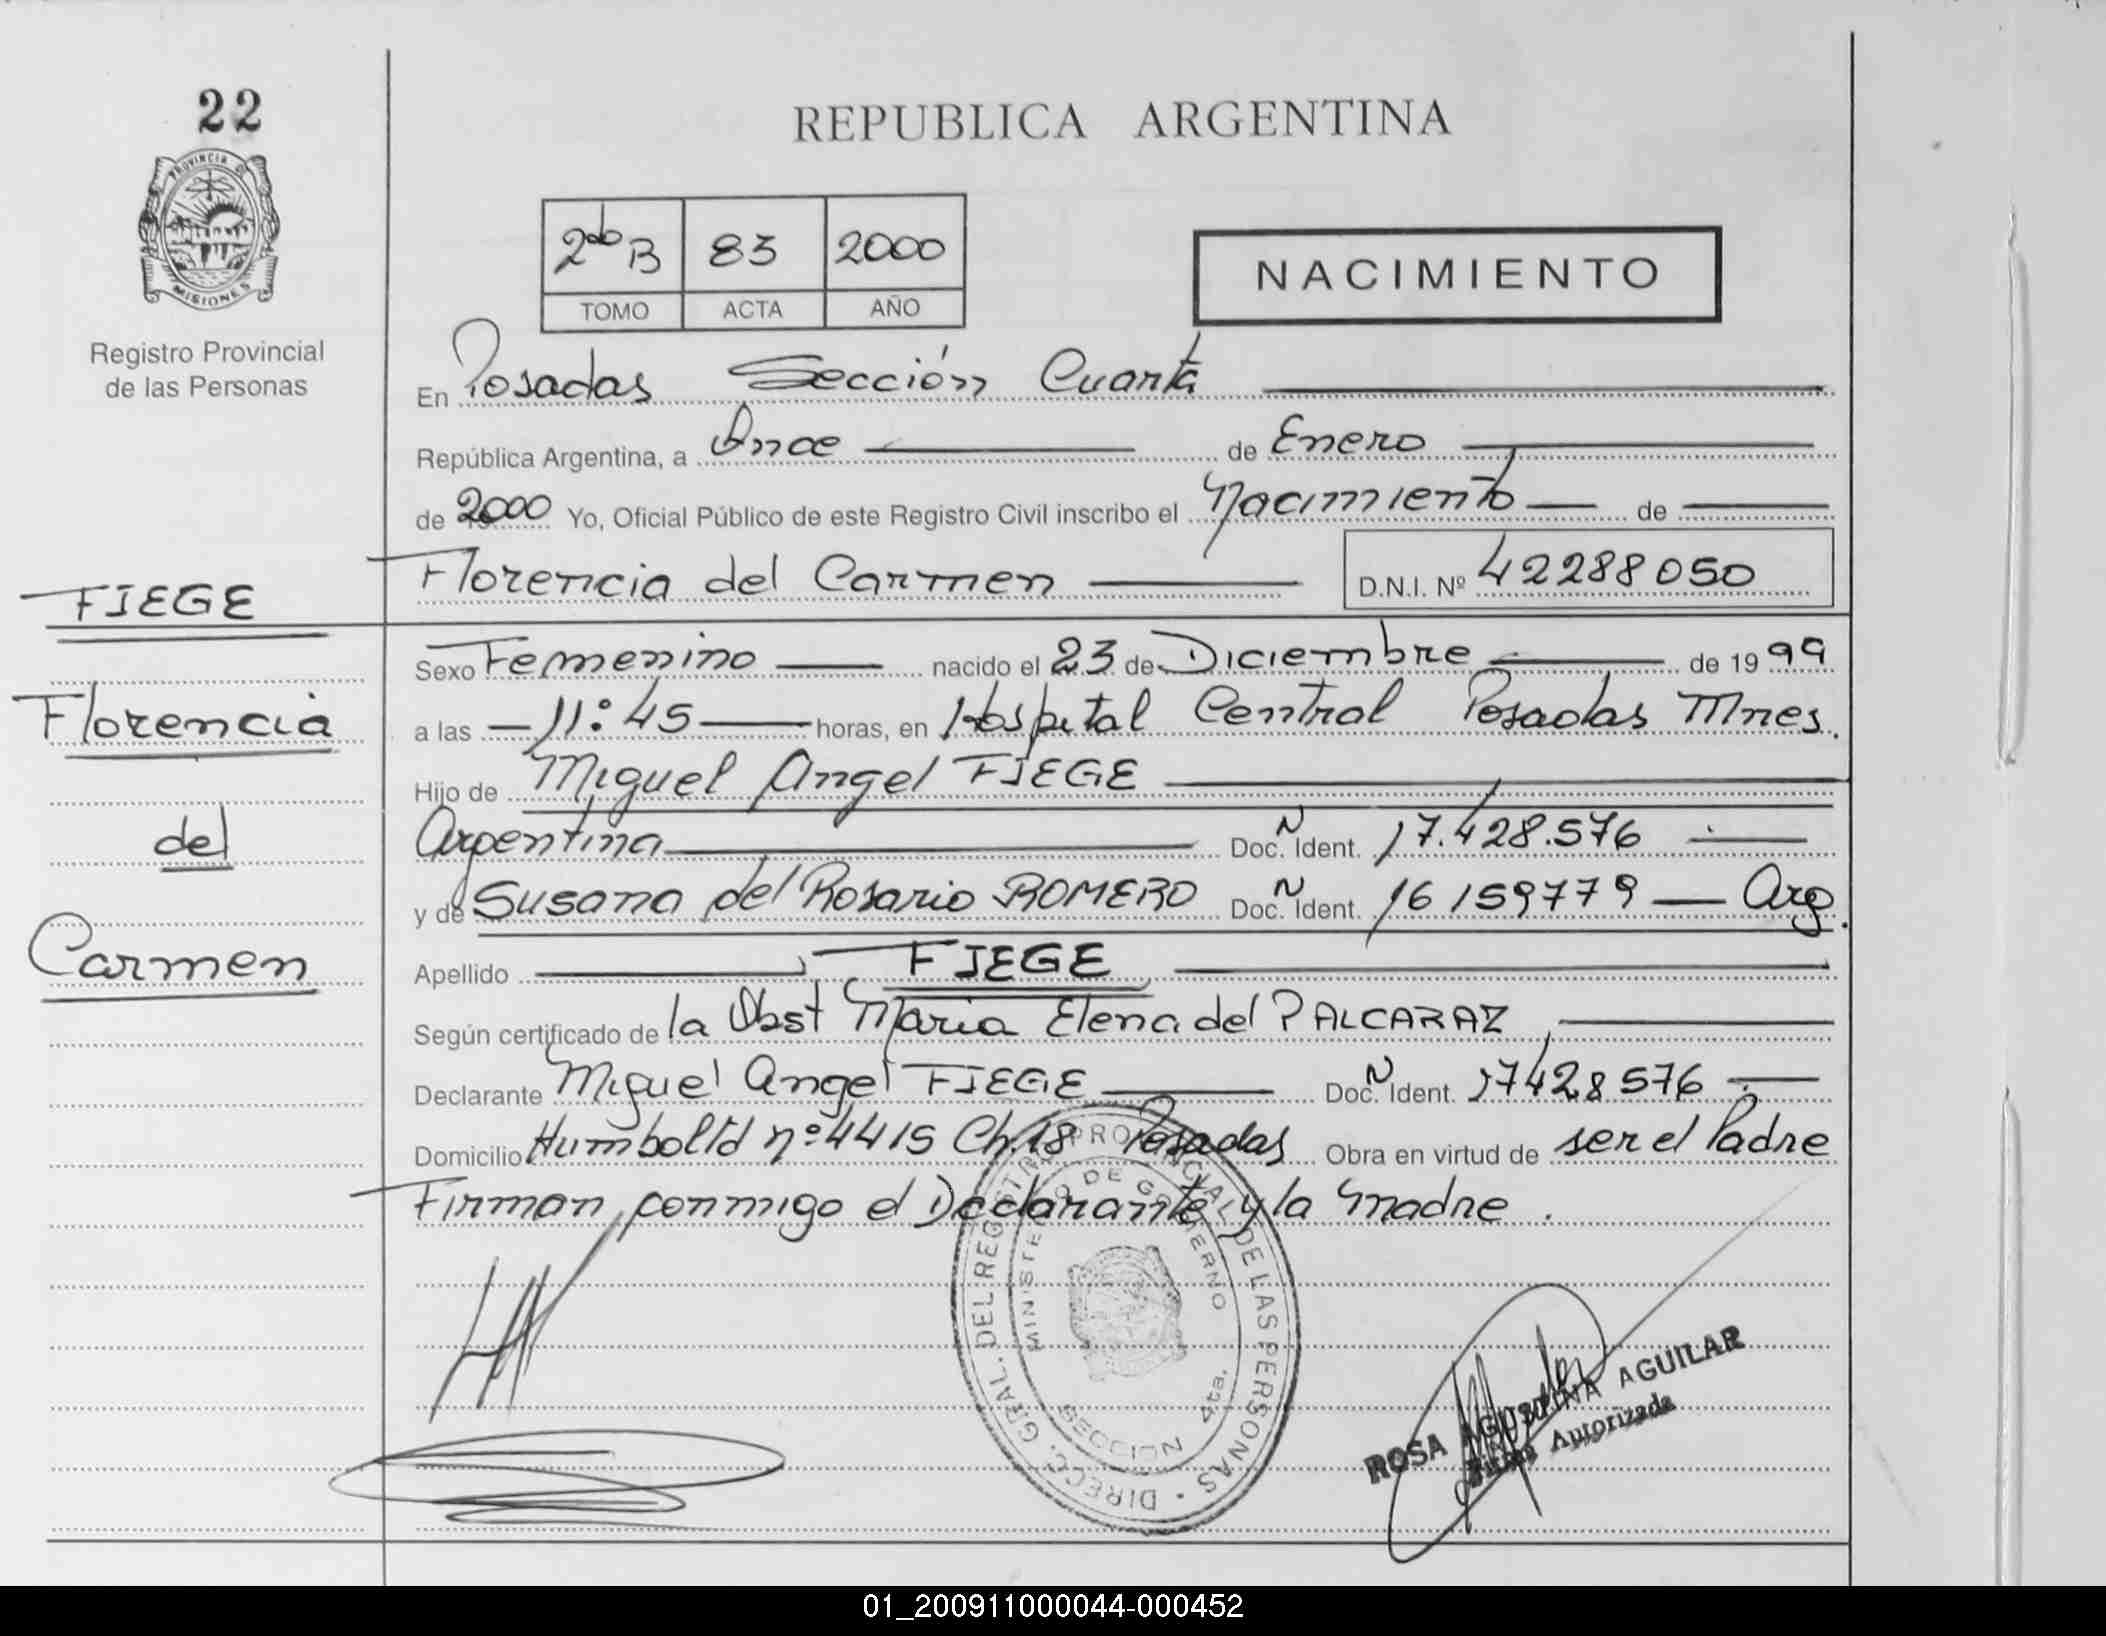 22
PROVINCIA DE
MISIONES
Registro Provincial
de las Personas
FIEGE
Florencia
del
Carmen
REPUBLICA ARGENTINA
2do B 83 2000
TOMO ACTA AÑO
NACIMIENTO
En Posadas Sección Cuarta
República Argentina, a Once de Enero
de 2000 Yo, Oficial Público de este Registro Civil inscribo el Nacimiento de
Florencia del Carmen D.N.I. Nº 42288050
Sexo Femenino nacido el 23 de Diciembre de 1999
a las 11:45 horas, en Hospital Central Posadas Mnes.
Hijo de Miguel Angel FIEGE
Argentina Doc. N Ident. 17.428.576
y de Susana del Rosario ROMERO Doc. N Ident. 16159779 Arg.
Apellido FIEGE
Según certificado de la Obst Maria Elena del P ALCARAZ
Declarante Miguel Angel FIEGE Doc. N Ident. 17428576
Domicilio Humbolt'd nº 4415 Ch. 18 Posadas Obra en virtud de ser el Padre
Firman conmigo el Declarante y la Madre.
DIRECC. GRAL. DEL REGISTRO PROVINCIAL DE LAS PERSONAS
MINISTERIO DE GOBIERNO
SECCION 4ta.
ROSA AGUSTINA AGUILAR
Firma Autorizada
01_200911000044-000452